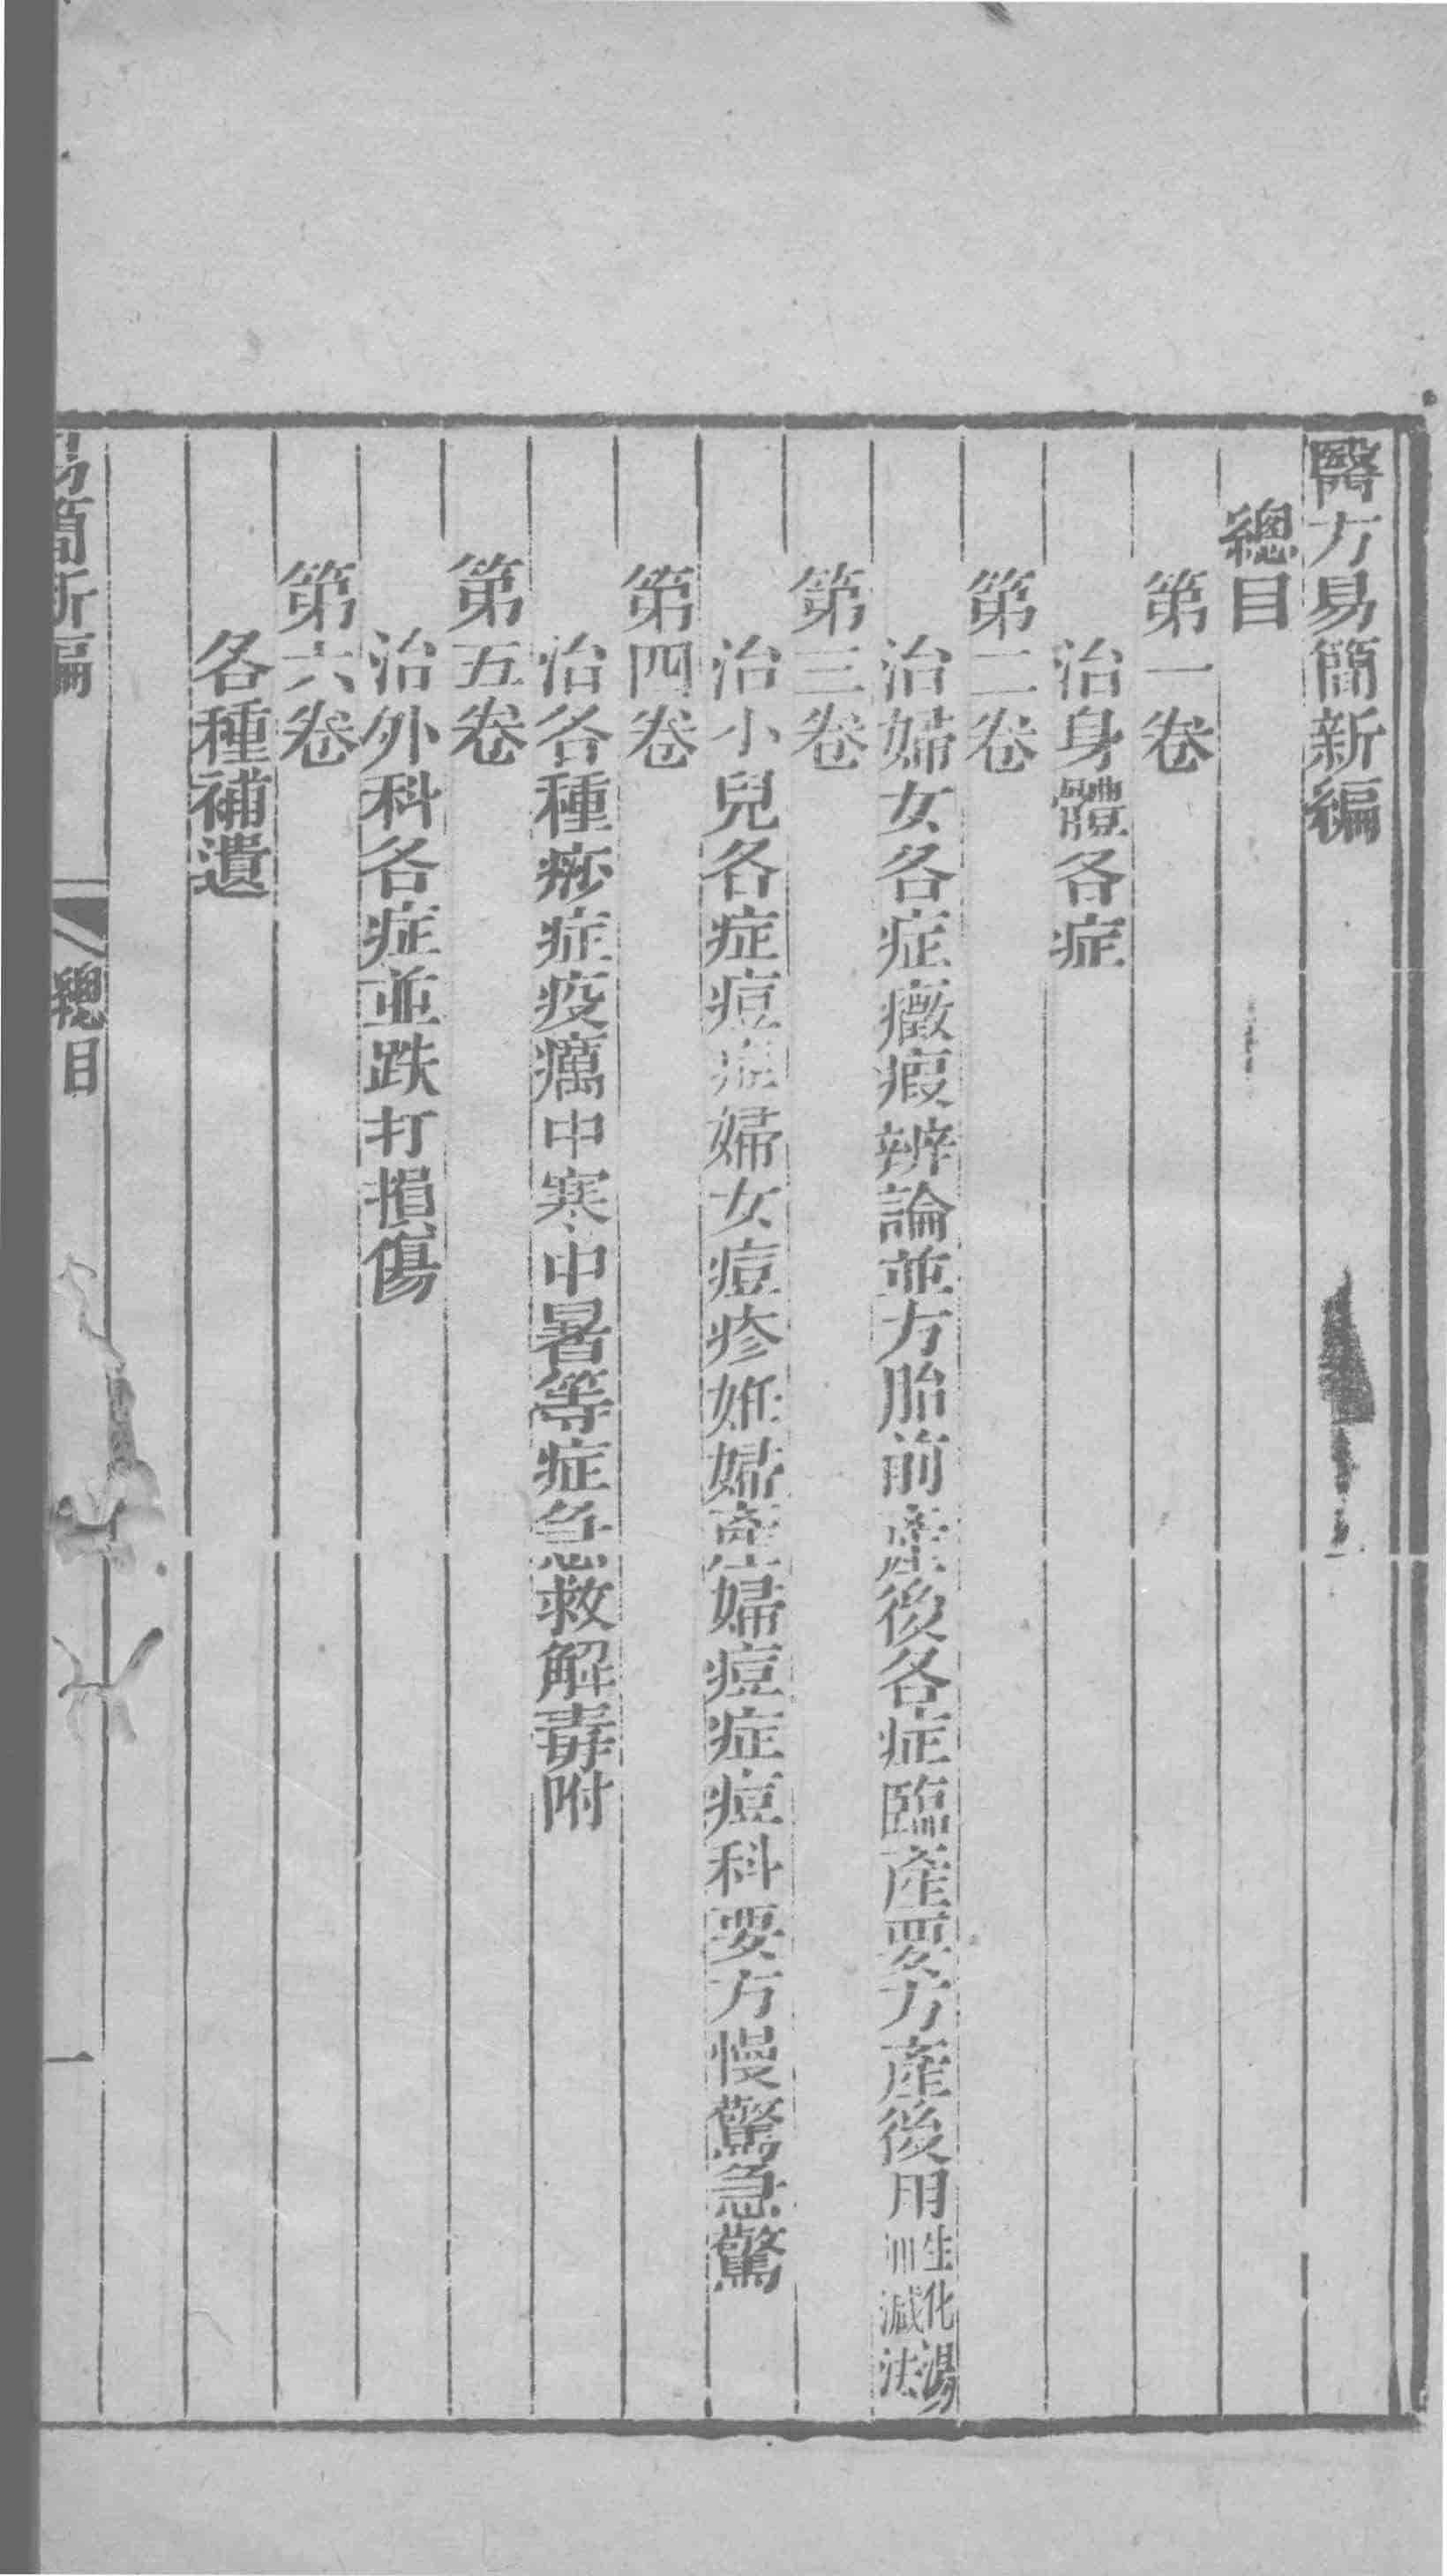 醫方易簡新編
總目
第一卷
治身體各症
第二卷
治婦女各症癥瘕辨論並方胎前產後各症臨產要方產後用生化湯加減法
第三卷
治小兒各症痘症婦女痘疹姙婦產婦痘症痘科要方慢驚急驚
第四卷
治各種痧症疫癘中寒中暑等症急救解毒附
第五卷
治外科各症並跌打損傷
第六卷
各種補遺
易簡新編
總目
一